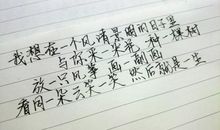 我想在一个风清景明的日子里
与你采一朵花 种一棵树
放一只风筝 画一副画
看同一朵云笑一笑 然后就是一生